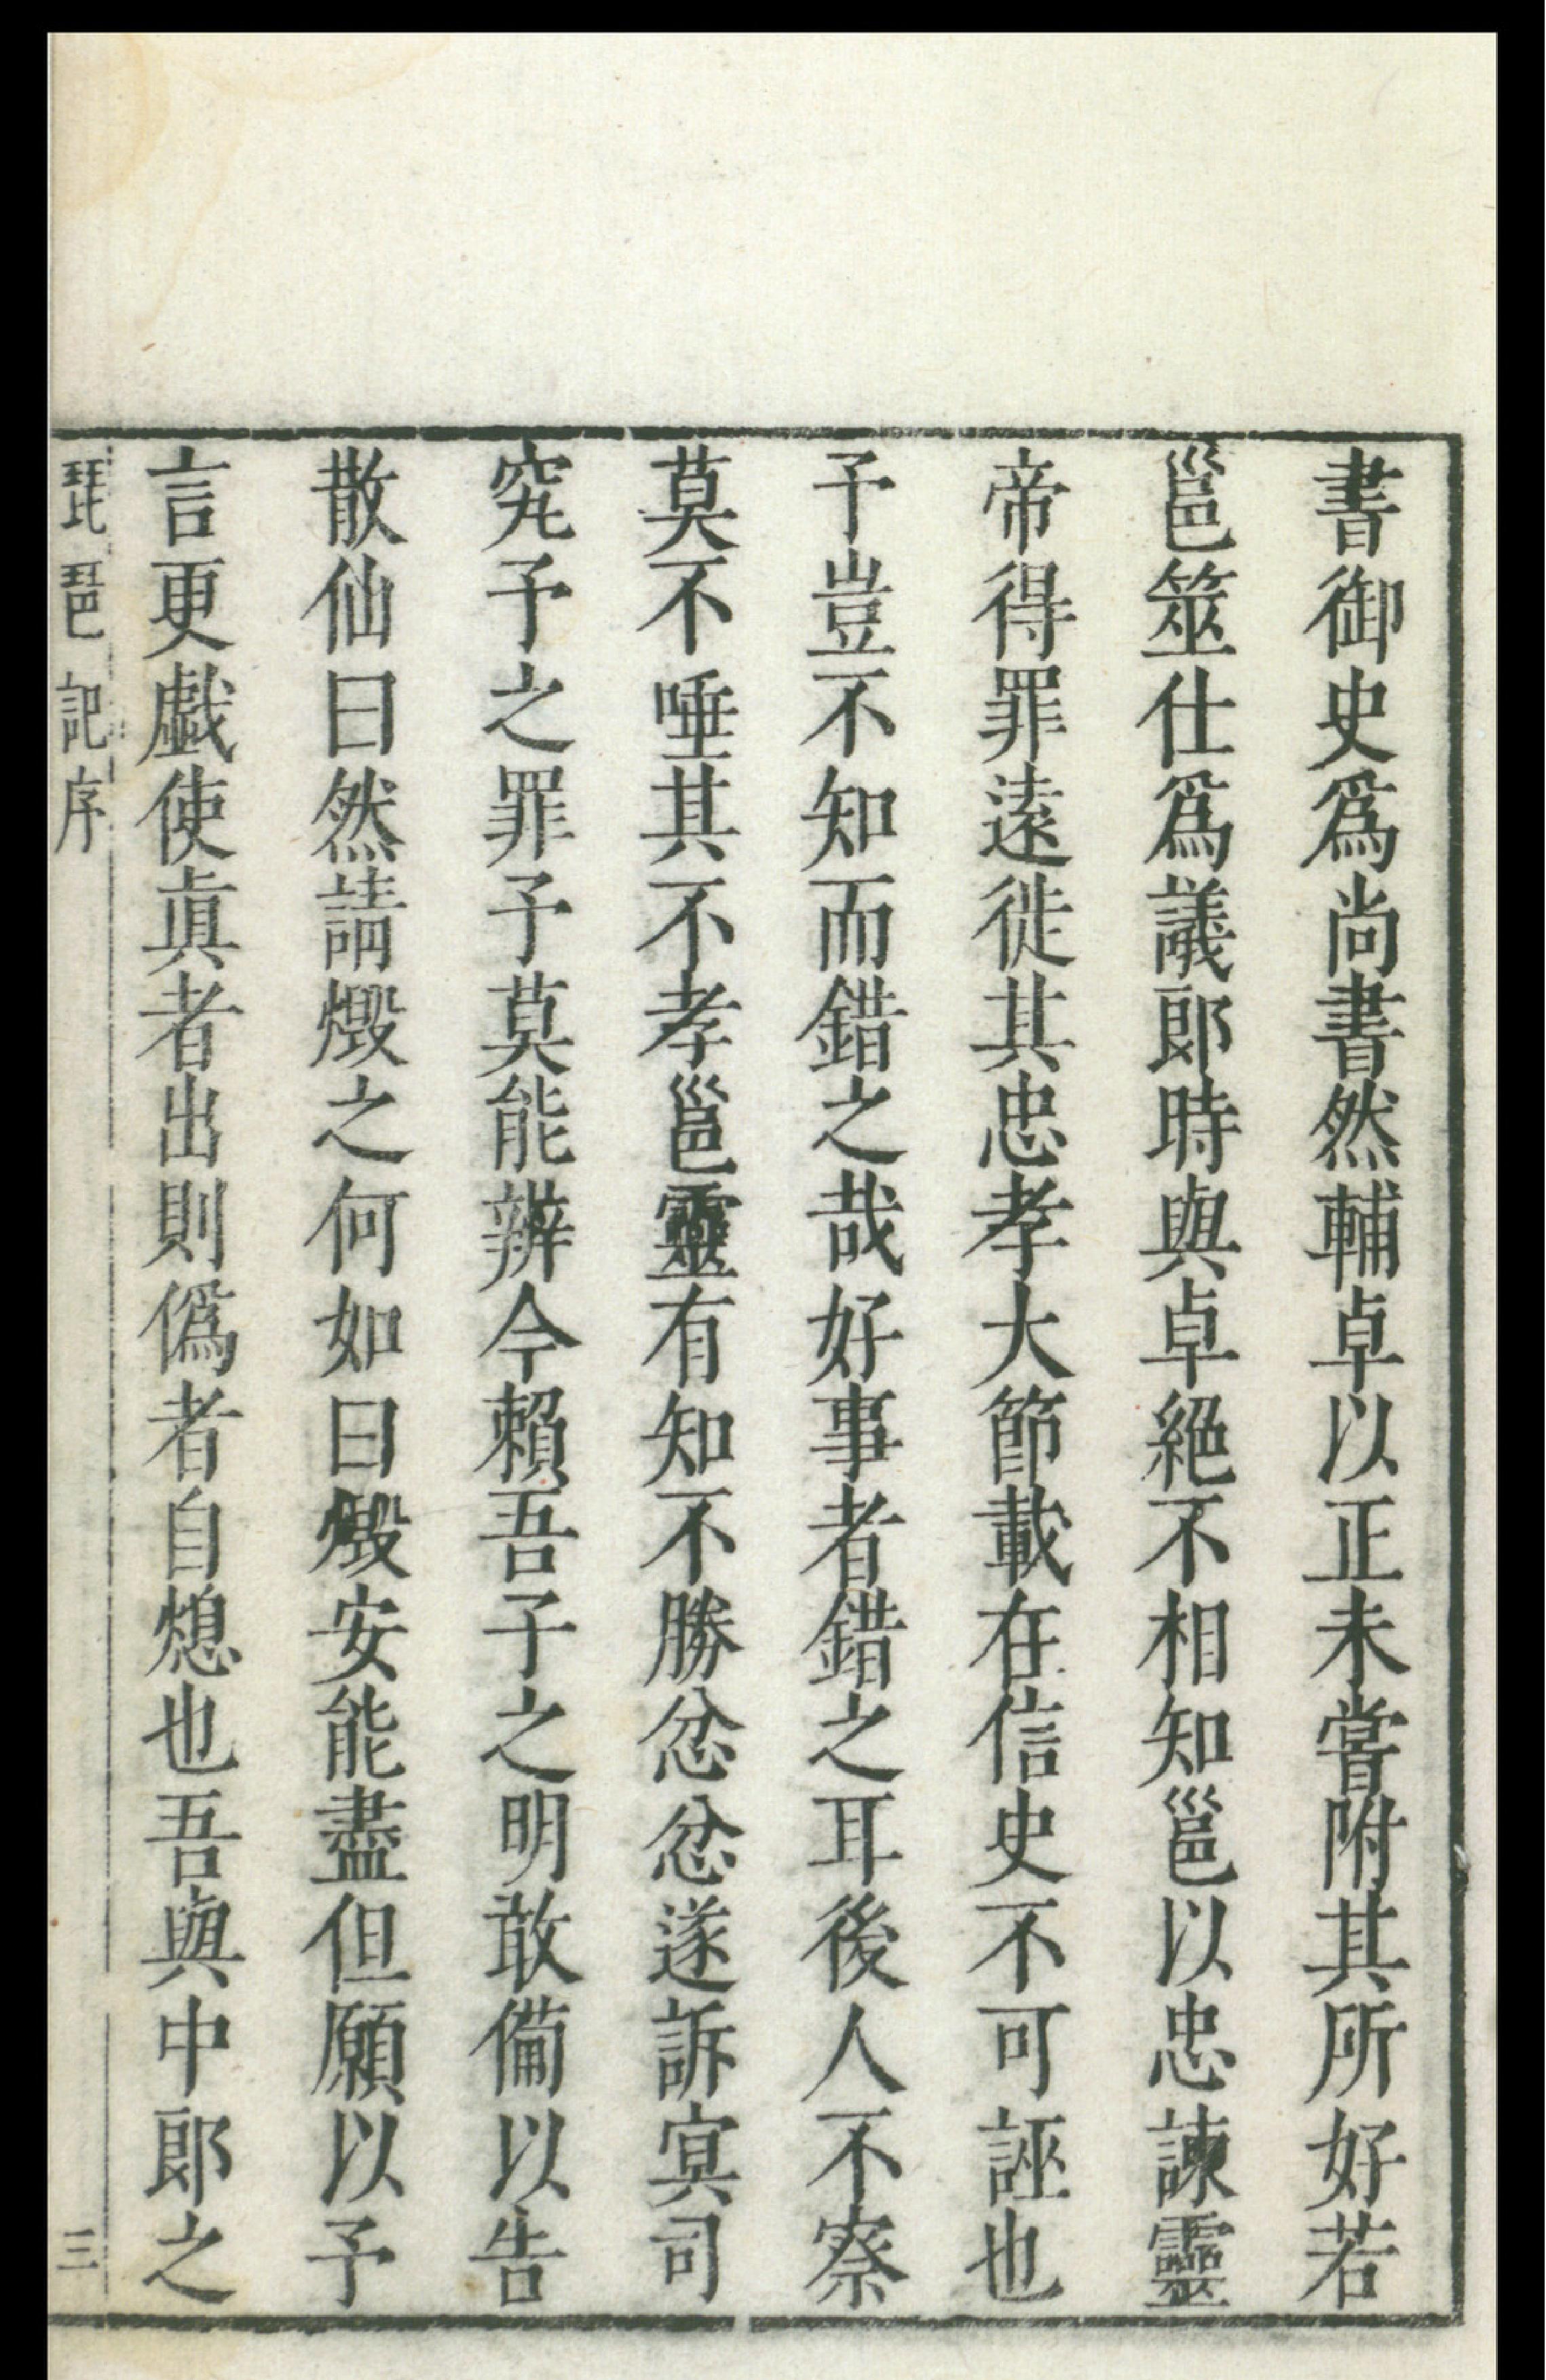 書御史爲尚書然輔卓以正未嘗附其所好若
邕筮仕爲議郎時與卓絕不相知邕以忠諫靈
帝得罪遠徙其忠孝大節載在信史不可誣也
予豈不知而錯之哉好事者錯之耳後人不察
莫不唾其不孝邕靈有知不勝忿忿遂訴冥司
究予之罪予莫能辨今賴吾子之明敢備以告
散仙曰然請燬之何如曰燬安能盡但願以予
言更戲使眞者出則僞者自熄也吾與中郎之
琵琶記序 三